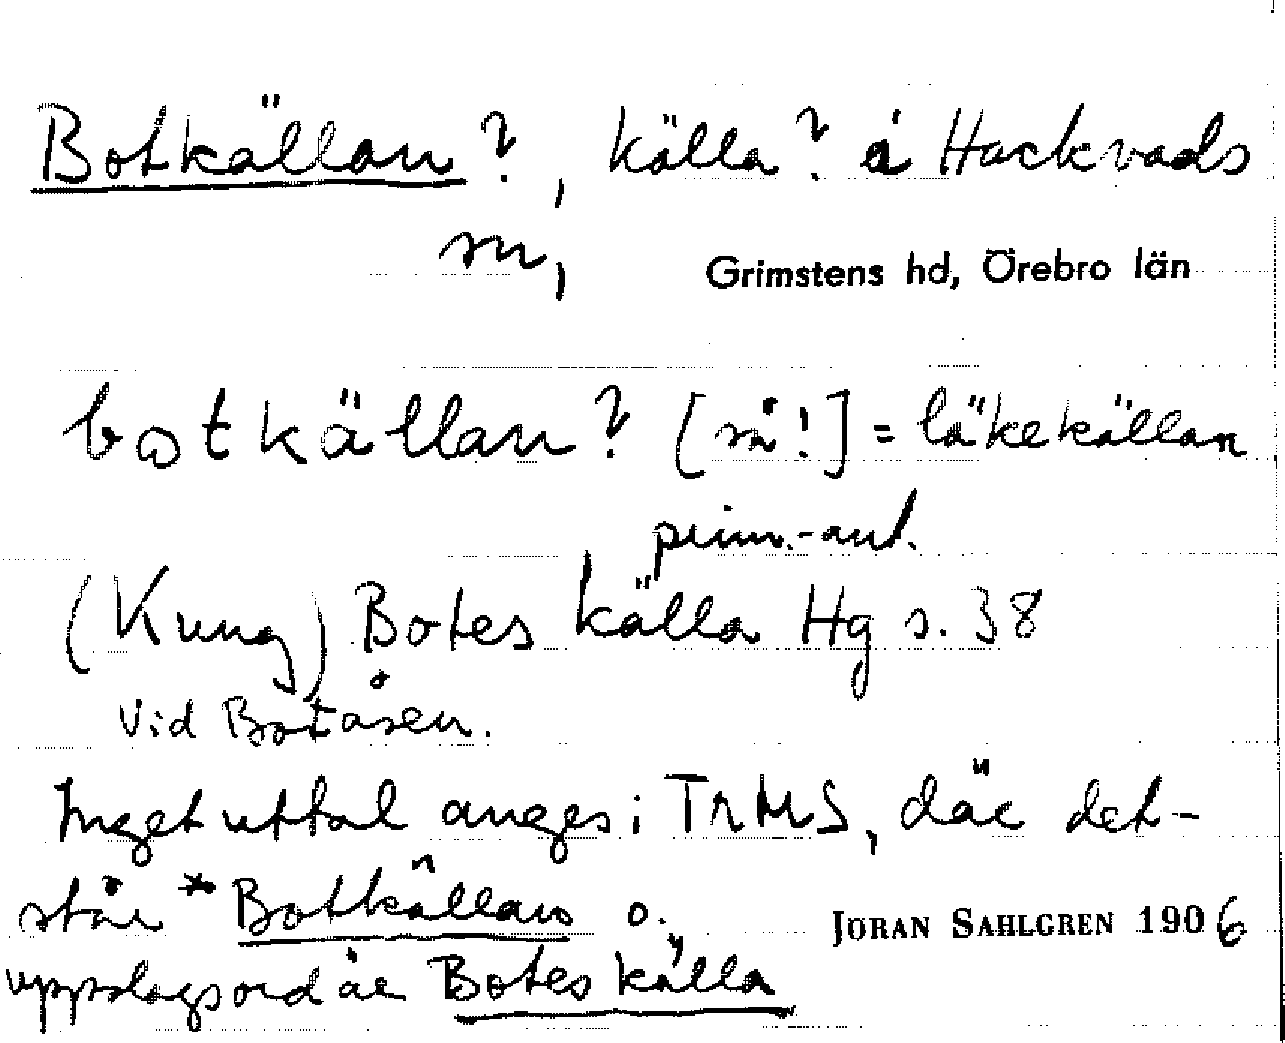 Botkällan?, källa? å Hackvads
sn, Grimstens hd, Örebro län
botkällan? [så!] = läkekällan
prim.-ant.
(Kung) Botes källa Hg s. 38
vid Botåsen.
Inget uttal anges i TrMS, där det
står *Botkällan o. JÖRAN SAHLGREN 1906
uppslagsord är Botes källa